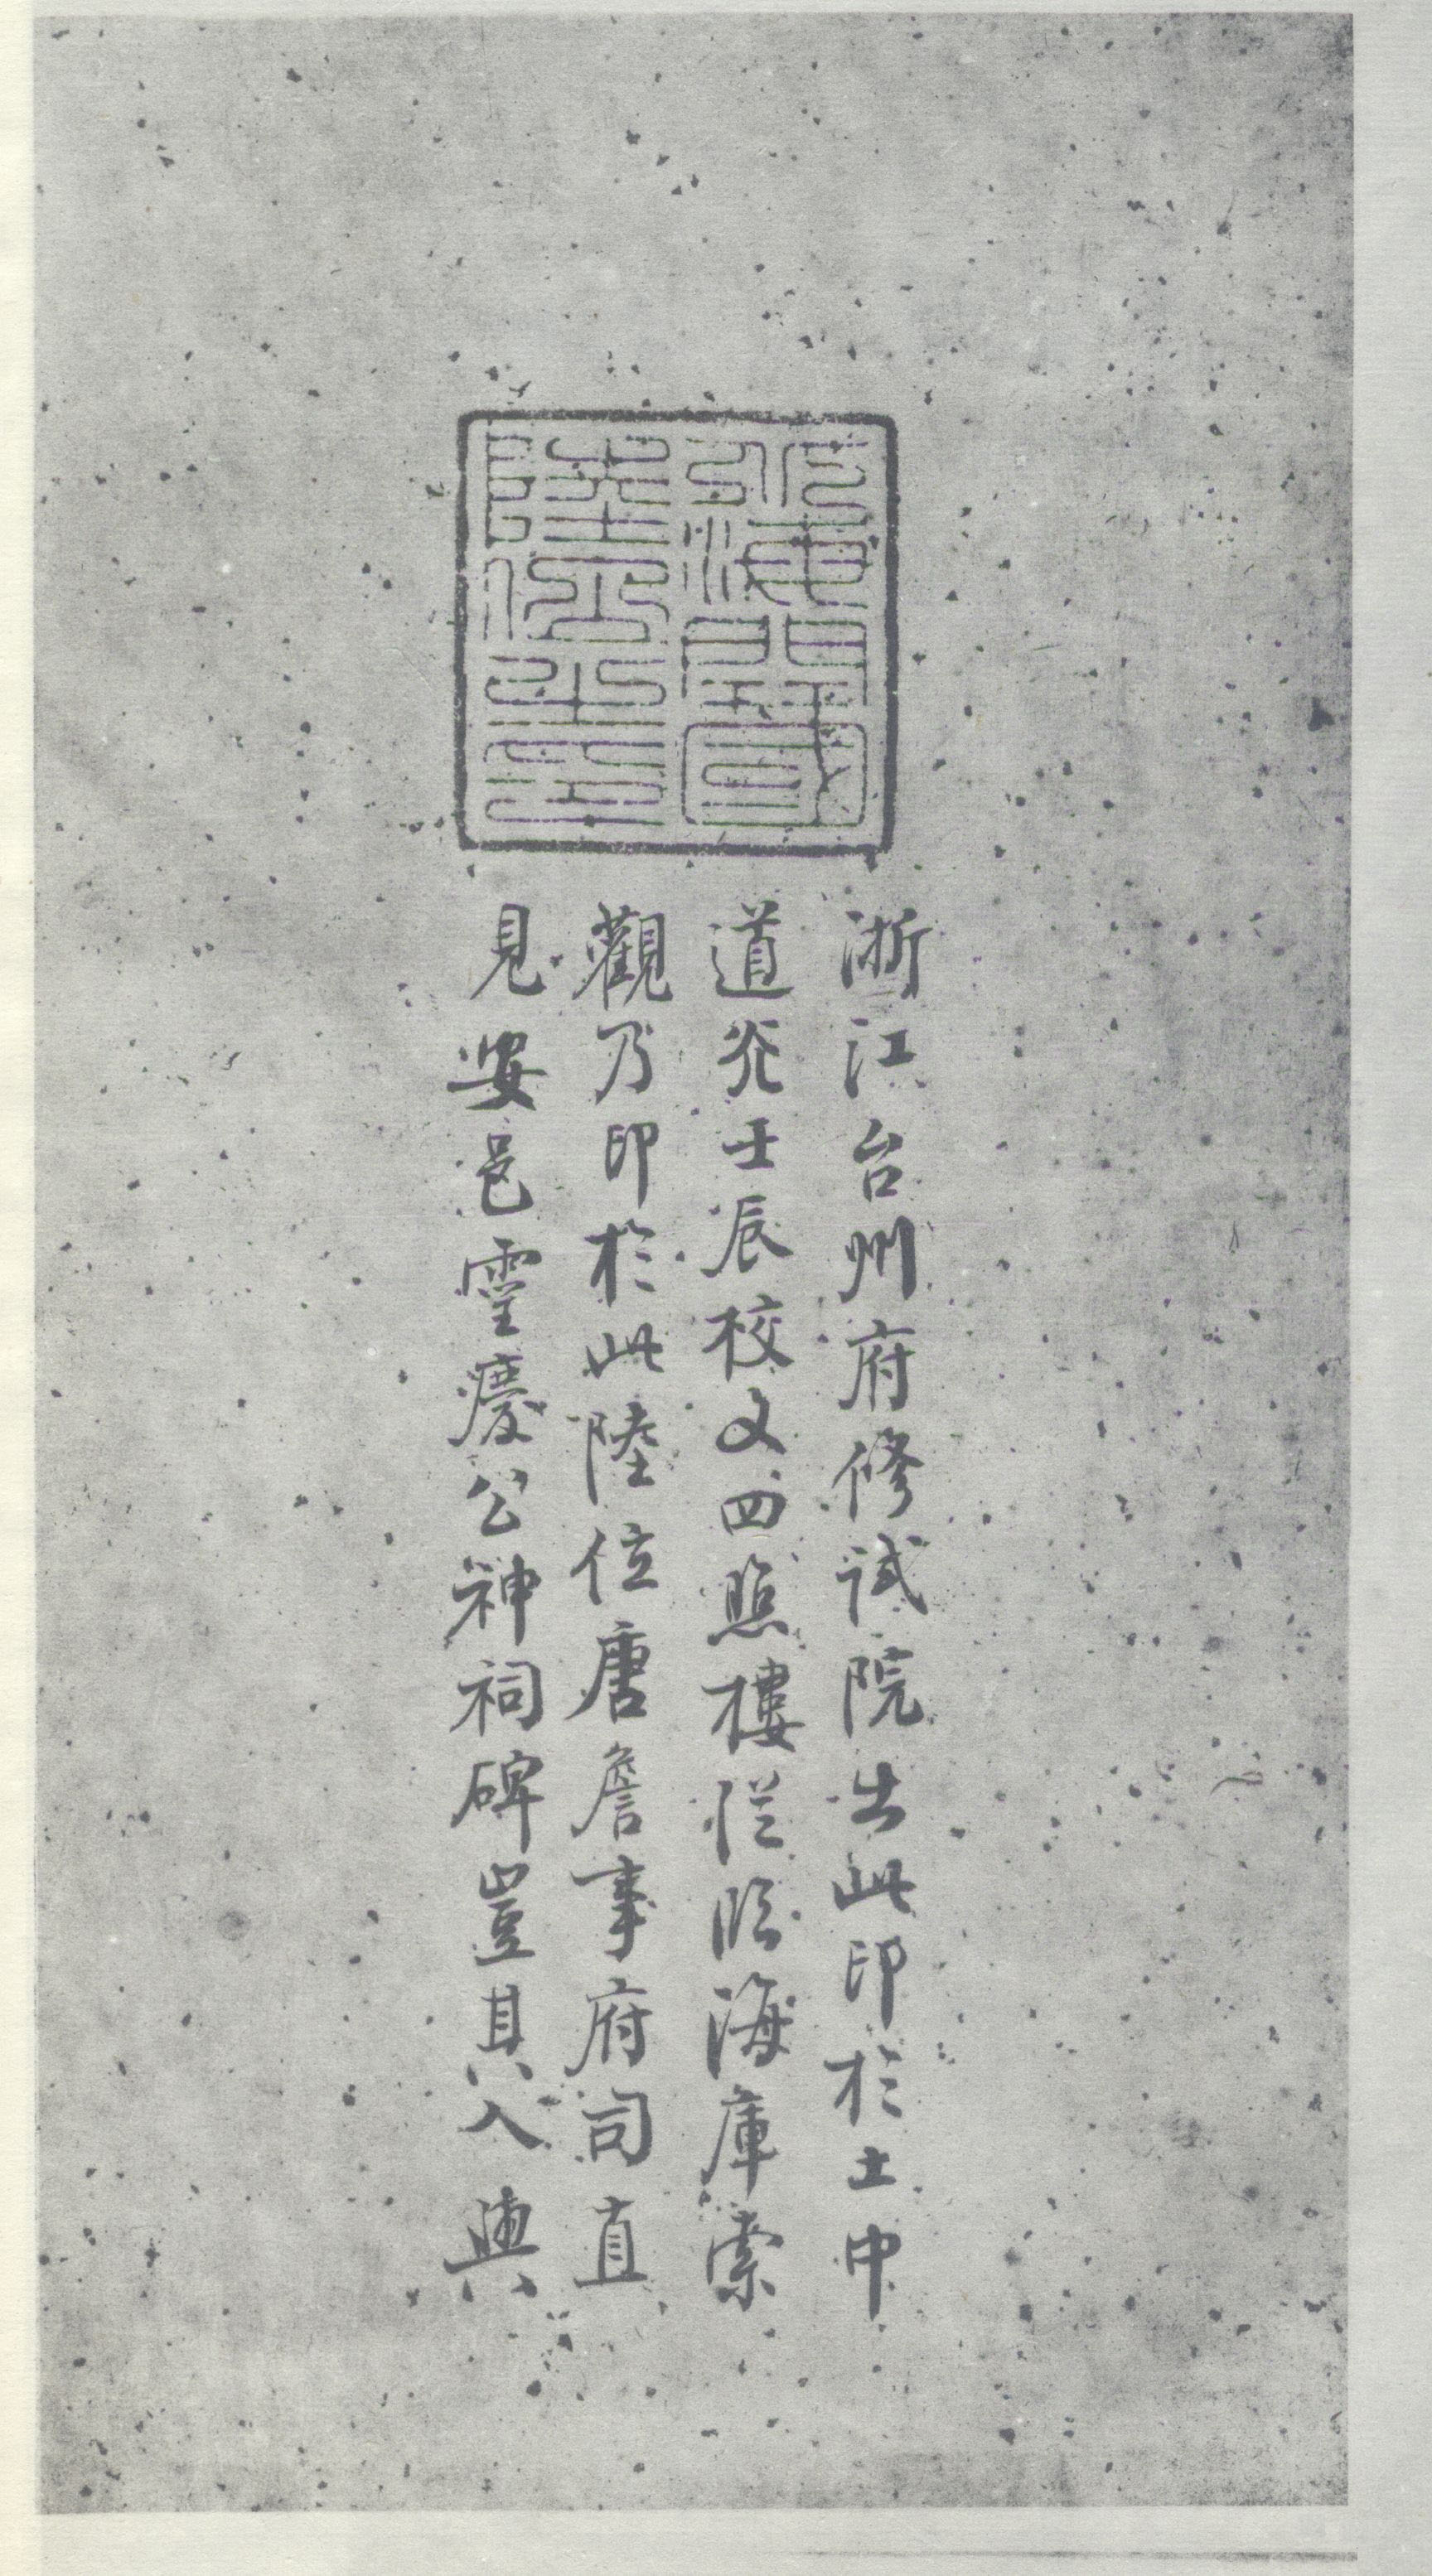 海開國
陸位之印
浙江台州府修試院出此印於土中
道光壬辰校文四照樓從臨海庫索
觀乃印於此陸位唐詹事府司直
見安邑靈慶公神祠碑豈其人與